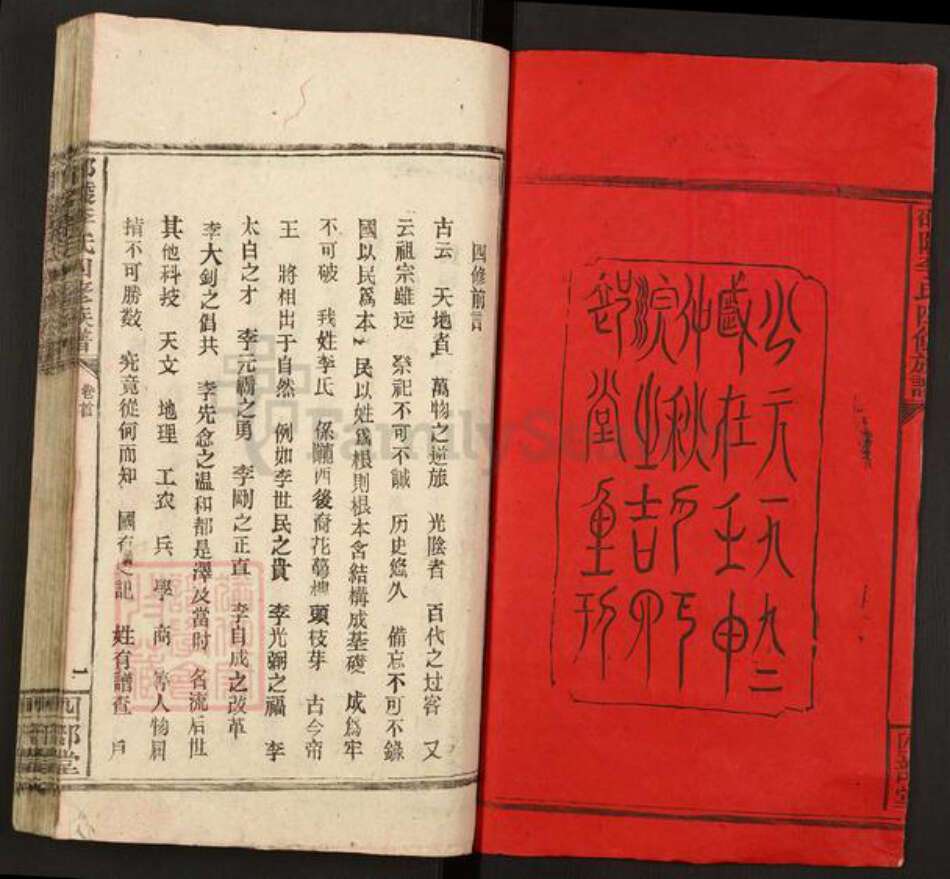 公元一九九二
歲在壬申
仲秋
浣之吉
堂重刊
四修前言
古云 天地者 萬物之逆旅 光陰者 百代之过客 又
云祖宗雖远 祭祀不可不誠 历史悠久 備忘不可不錄
國以民爲本 民以姓爲根則根本含結構成基礎 成爲牢
不可破 我姓李氏 係隴西後裔花萼棣頭枝芽 古今帝
王 將相出于自然 例如李世民之貴 李光弼之福 李
太白之才 李元霸之勇 李剛之正直 李自成之改革
李大釗之倡共 李先念之温和都是澤及當时 名流后世
其他科技 天文 地理 工农 兵 學 商 等人物屈
指不可勝数 究竟從何而知 國有之記 姓有譜查 戶
李氏四修族譜
卷首
二
四邵堂
李氏四修族譜